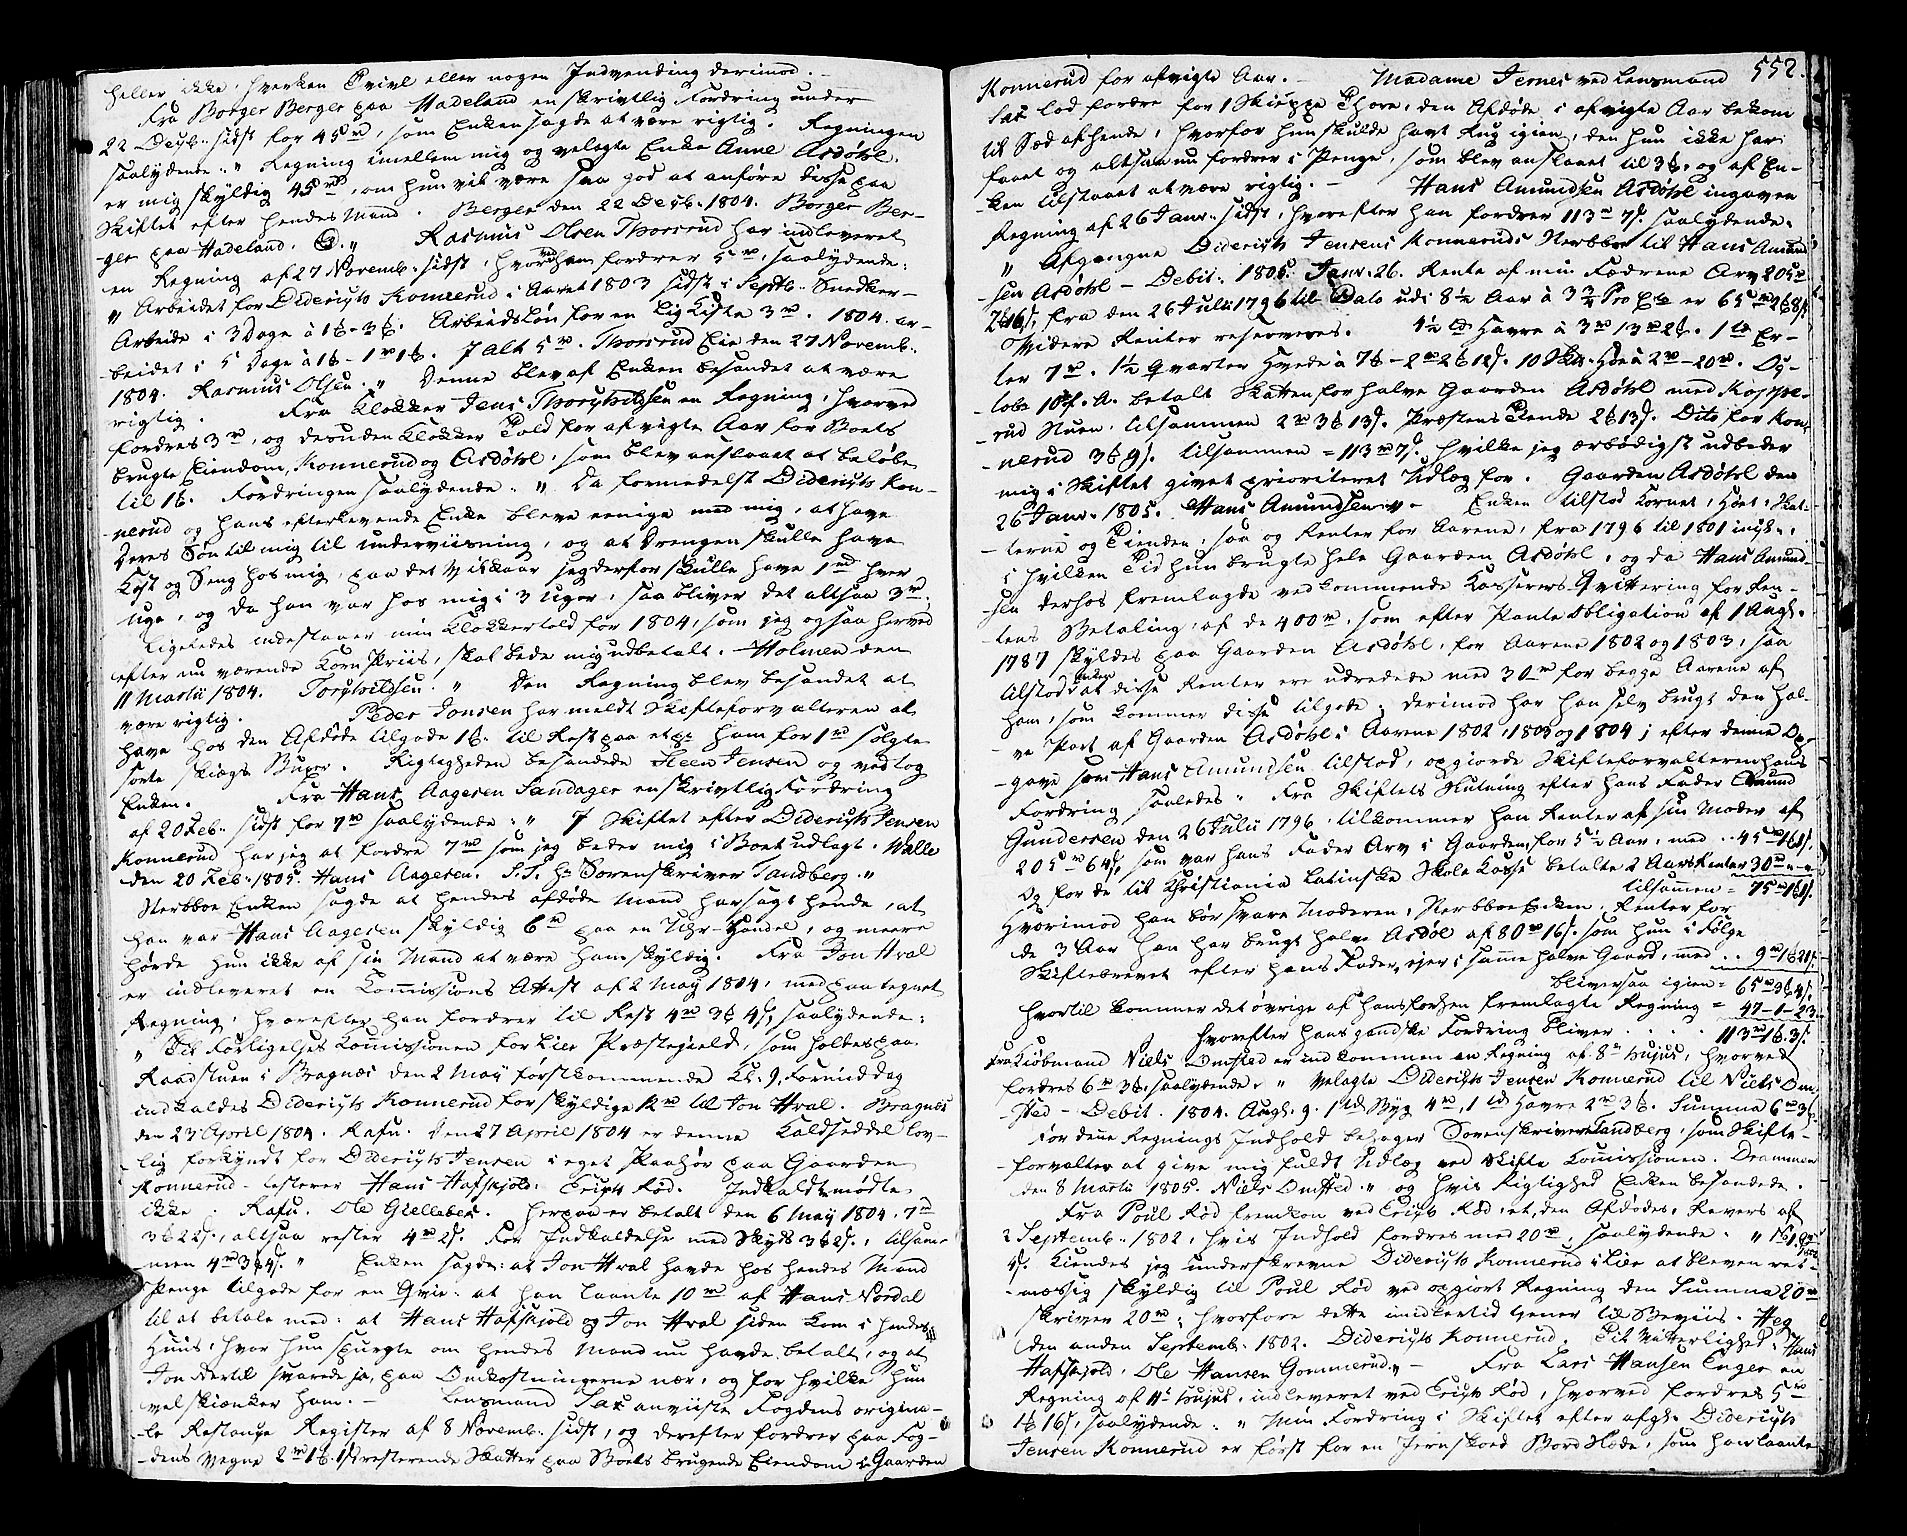 heller ikke hverken Tvivl eller nogen Indvending derimod. –
Fra Borger Berger paa Hadeland en skrivtlig Fordring under
22 Decb. sidst for 45 rd, som Enken sagde at være rigtig. Regningen
saalydende: „ Regning imellem mig og velagte Enke Anne Asdøhl,
er mig skyldig 45 rd, om hun vil være saa god at anføre disse paa
Skiftet efter hendes Mand. Berger den 22 Decb. 1804. Borger Ber-
ger paa Hadeland. „ Rasmus Olsen Thorsrud har indleveret
en Regning af 27 Novemb. sidst, hvorved han fordrer 5 rd, saalydende:
„ Arbeidet for Diderich Konnerud i Aaret 1803 sidst i Septb. Snedker-
Arbeide i 3 Dage à 1 ß – 3 ß. Arbeidsløn for en Lig Kiste 3 rd. 1804. ar-
beidet i 5 Dage à 1 ß – 1 rd 1 ß. I alt 5 rd. Thorsrud Eie den 27 Novemb.
1804. Rasmus Olsen. „ Denne blev af Enken besandet at være
rigtig. Fra Klokker Jens Thorchildsen en Regning, hvorved
fordres 3 rd, og desuden Klokker Told for afvigte Aar for Boets
brugte Eiendom, Konnerud og Asdøhl, som blev anslaaet at beløbe
til 1 ß. Fordringen saalydende: „ Da formedelst Diderich Kon-
nerud og hans efterlevende Enke bleve eenige med mig, at have
Deres Søn til mig til underviisning, og at Drengen skulle have
Kost og Seng hos mig, paa det Vilkaar jeg derfor skulle have 1 rd hver
Uge, og da han var hos mig i 3 Uger, saa bliver det altsaa 3 rd,
Ligeledes indestaaer min Klokkertold for 1804, som jeg ogsaa herved
efter nu værende Korn Priis, skal bede mig udbetalt. Holmen den
11 Martii 1804. Torchildsen. „ Den Regning blev besandet at
være rigtig. Peder Jonsen har meldt Skifteforvalteren at
have hos den Afdøde tilgode 1 ß. til Rest paa et pr ham for 1 rd solgte
sorte skiægs Buxer. Rigtigheden besandede Steen Jensen og vedtog
Enken. Fra Hans Aagesen Sandager en skrivtlig Fordring
af 20 Feb. sidst for 7 rd saalydende: „ I Skiftet efter Diderich Jensen
Konnerud har jeg at fordre 7 rd som jeg beder mig i Boet udlagt. Walle
den 20 Feb. 1805. Hans Aagesen. S.T. Hr Sorenskriver Tandberg. „
Sterbboe Enken sagde at hendes afdøde Mand har sagt hende, at
han var Hans Aagesen skyldig 6 rd paa en Uhr-Handel, og meere
hørde hun ikke af sin Mand at være ham skyldig. Fra Jon Hval
er indleveret en Commissions Attest af 2 May 1804, med paategnet
Regning, hvorefter han fordrer til Rest 4 rd 3 ß 4 s, saalydende:
„ Til Forligelses Commissionen for Lier Præstegield, som holdes paa
Raadstuen i Bragnæs den 2 Maÿ førstkommende Kl: 9, Formiddag
indkaldes Diderich Konnerud for skyldige 12 rd til Jon Hval. Bragnæs
den 23 April 1804. Rafn. Den 27 April 1804 er denne Kaldseddel lov-
lig forkyndt for Diderich Jensen i eget Paahør paa Gaarden
Konnerud – testerer Hans Hafskjold. Erich Rød. Indkaldte mødte
ikke. Rafn. Ole Gielleber. Herpaa er betalt den 6 Maÿ 1804. 7 rd
3 ß 22 s, altsaa rester 4 rd 2 s. For Indkaldelse med Skyds 3 ß 2 s, tilsam-
men 4 rd 3 ß 4 s. „ Enken sagde: at Jon Hval havde hos hendes Mand
Penge tilgode for en Qvie: at han laante 10 rd af Hans Nordal
til at betale med: at Hans Hafskjold og Jon Hval siden kom i hendes
Huus, hvor hun spurgte om hendes Mand nu havde betalt, og at
Jon dertil svarede ja, paa Omkostningerne nær, og for hvilke hun
vel skienker ham. – Lensmand Sax anviiste Fogdens origina-
le Restange Register af 8 Novemb. sidst, og derefter fordrer paa Fog-
dens Vegne 2 rd 1 ß. 1 s resterende Skatter paa Boets brugende Eiendom i Gaarden
552.
Konnerud for afvigte Aar. – Madame Jernes ved Lensmand
Sax lod fordre for 1 Skieppe Thore, den Afdøde i afvigte Aar bekom
til Sæd af hende, hvorfor hun skulde havt Rug igien, den hun ikke har
faaet og altsaa nu fordrer i Penge, som blev anslaaet til 3 ß. og af En-
ken tilstaaet at være rigtig. – Hans Amundsen Asdøhl ingaven
Regning af 26 Janr. sidst, hvorefter han fordrer 113 rd 7 s. saalydende:
„ Afgangne Diderich Jensens Konneruds Sterbboe til Hans Amund-
sen Asdøhl – Debit. 1805. Janr. 26. Rente af min Fædrene Arv 205 rd
2 ß 16 s, fra den 26 Julii 1796 til Dato udi 8 ½ Aar à 3 ¾ Pro Cto er 65 rd 2 ß 8 s.
Videre Renter reserveres. 4 ½ td Havre à 3 rd 13 rd 2 ß. 1 td Er-
ter 7 rd. 1 ½ Qvarter Hvede à 7 ß – 2 rd 2 ß 12 s. 10 Høe à 2 rd – 20 rd. Oc-
tobr 10 s. A. betalt Skatten for halve Gaarden Asdøhl med Koppe-
rud Nuen, tilsammen 2 rd 3 ß 13 s. Præstens Tiende 2 ß 13 s. Dito for Kon-
nerud 3 ß 9 s. tilsammen = 113 rd 7 s. hvilke jeg ærbødigst udbeder
mig i Skiftet givet prioriteret Udlæg for. Gaarden Asdøhl den
26 Janr. 1805. Hans Amundsen. „ – Enken tilstod Kornet, Høet, Skat-
terne og Tienden, saa og Renter for Aarene, fra 1796 til 1801 incl.,
i hvilken Tid hun brugte hele Gaarden Asdøhl, og da Hans Amund-
sen derhos fremlagde vedkommende Kasserers Qvittering for Ren-
tens Betaling, af de 400 rd, som efter Pante Obligation af 1 Augs.
1787 skyldes paa Gaarden Asdøhl, for Aarene 1802 og 1803, saa
tilstod Enken at disse Renter ere udredede med 30 rd for begge Aarene af
ham, som kommer disse tilgode; derimod har han selv brugt den hal-
ve Part af Gaarden Asdøhl i Aarene 1802, 1803 og 1804; efter denne Op-
gave som Hans Amundsen tilstod, opgiorde Skifteforvalteren hans
Fordring saaledes: Fra Skiftets Slutning efter hans Fader Amund
Gundersen den 26 Julii 1796 tilkommer han Renter af sin Moder af
205 rd 64 s, som var hans Fader Arv i Gaarden, for 5 ½ Aar, med .. 45 rd 1 ß 8 s.
Og for de til Christiania Latinske Skole Casse betalte 2 Aars Renter 30 rd „ „
tilsamen = 75 rd 1 ß 8 s.
Hvorimod han bør svare Moderen, Sterbboe Enken, Renter for
de 3 Aar han har brugt halve Asdøl af 80 rd 16 s. som hun i Følge
Skiftebrevet efter hans Fader, ejer i samme halve Gaard, med .. 9 rd 1 ß 28 s.
bliver saa igien = 65 rd 3 ß 4 s.
hvortil kommer det øvrige af hans forhen fremlagte Regning = 47 – 1 – 23.
hvorefter hans gandske Fordring bliver . . . . 113 rd 1 ß. 3 s.
Fra Kiøbmand Niels Omsted er indkommen en Regning af 8de hujus, hvorved
fordres 6 rd 3 ß. saalydende: „ Velagte Diderich Jensen Konnerud til Niels Om-
sted – Debit. 1804. Augs. 9. 1 td Byg 4 rd, 1 td Havre 2 rd 3 ß. Summa 6 rd 3 ß.
For denne Regnings Indhold behager Sorenskriver Tandberg, som Skifte-
forvalter at give mig fuldt Udlæg ved Skifte Commissionen. Drammen
den 8 Martii 1805. Niels Omsted. „ og hvis Rigtighed Enken besandede.
Fra Poul Rød fremkom ved Erich Rød, et, den Afdødes, Revers af
2 Septemb. 1802, hvis Indhold fordres med 20 rd, saalydende: „
4 s. Kiendes jeg underskrevne Diderich Konnerud i Lier at bleven ret-
mæssig skyldig til Poul Rød ved opgiort Regning den Summa 20 rd
skriver 20 rd; hvorfore dette imidlertid tiener til Beviis. Heg
den anden Septemb. 1802. Diderich Konnerud. Til Vitterlighed: Hans
Hafskjold. Ole Hansen Gommerud. „ – Fra Lars Hansen Enger en
Regning af 11te hujus, indleveret ved Erich Rød, hvorved fordres 5 rd
1 ß 16 s, saalydende: „ Min Fordring i Skiftet efter afg. Diderich
Jensen Konnerud er først for en Jernskoed Bord Slæde, som han laante